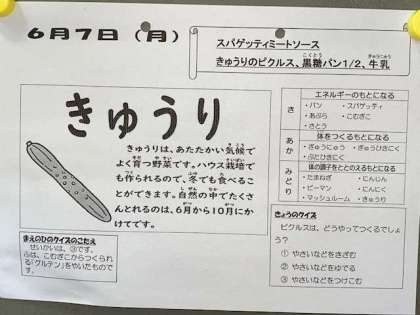 6月7日（月）
スパゲッティミートソース
きゅうりのピクルス、黒糖パン1/2、牛乳
きゅうり
きゅうりは、あたたかい気候で
よく育つ野菜です。ハウス栽培で
も作られるので、冬でも食べるこ
とができます。自然の中でたくさ
んとれるのは、6月から10月にか
けてです。
まえのひのクイズのこたえ
せいかいは、③です。
ふは、こむぎこからつくられ
る「グルテン」をやいたもので
す。
エネルギーのもとになる
・パン ・スパゲッティ
・あぶら ・こむぎこ
・さとう
あか
体をつくるもとになる
・ぎゅうにゅう ・ぎゅうひきにく
・ぶたひきにく
みどり
体の調子をととのえるもとになる
・たまねぎ ・にんじん
・ピーマン ・にんにく
・マッシュルーム ・きゅうり
きょうのクイズ
ピクルスは、どうやってつくるでしょう
？
① やさいなどをきざむ
② やさいなどをゆでる
③ やさいなどをつけこむ